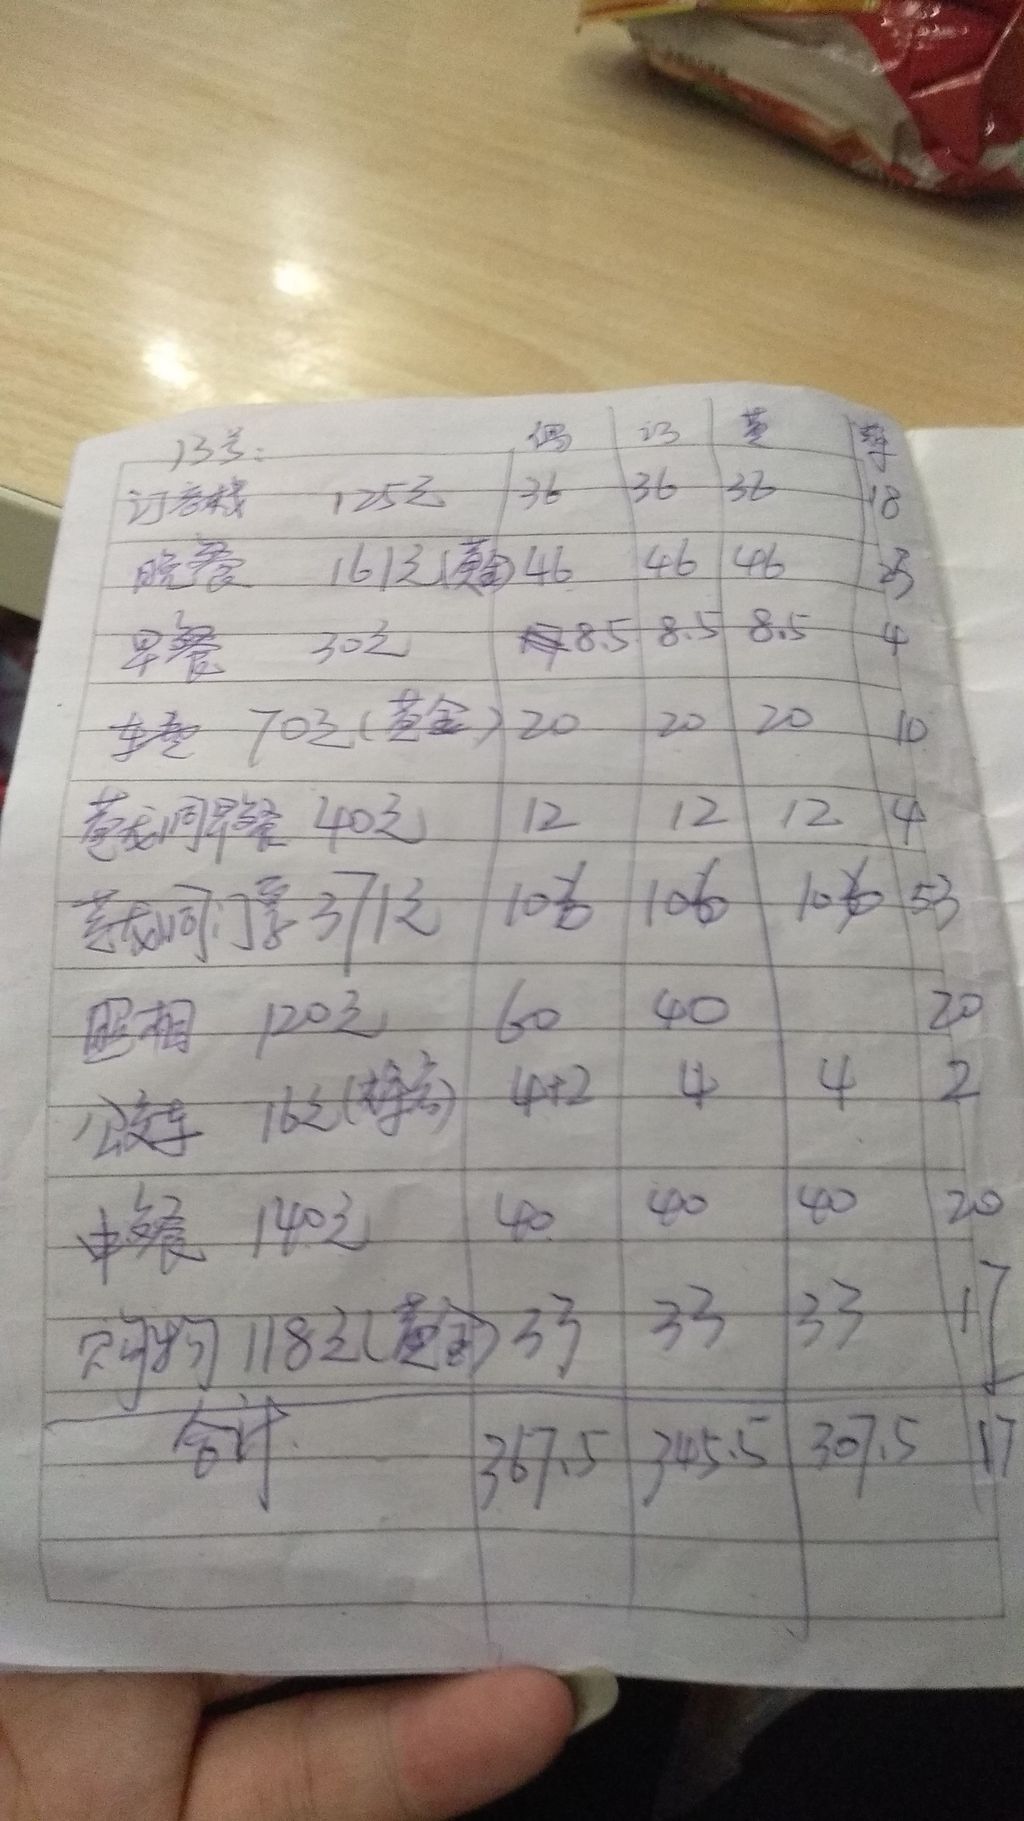 13号: 偶 冯 黄 李
订客栈 125元 36 36 36 18
晚餐 161元(黄金) 46 46 46 23
早餐 30元 8.5 8.5 8.5 4
车费 70元(黄金) 20 20 20 10
黄龙洞早餐 40元 12 12 12 4
黄龙洞门票 371元 106 106 106 53
照相 120元 60 40 20
公交车 16元 4+2 4 4 2
中餐 140元 40 40 40 20
购物 118元(黄金) 33 33 33 17
合计 367.5 345.5 307.5 17